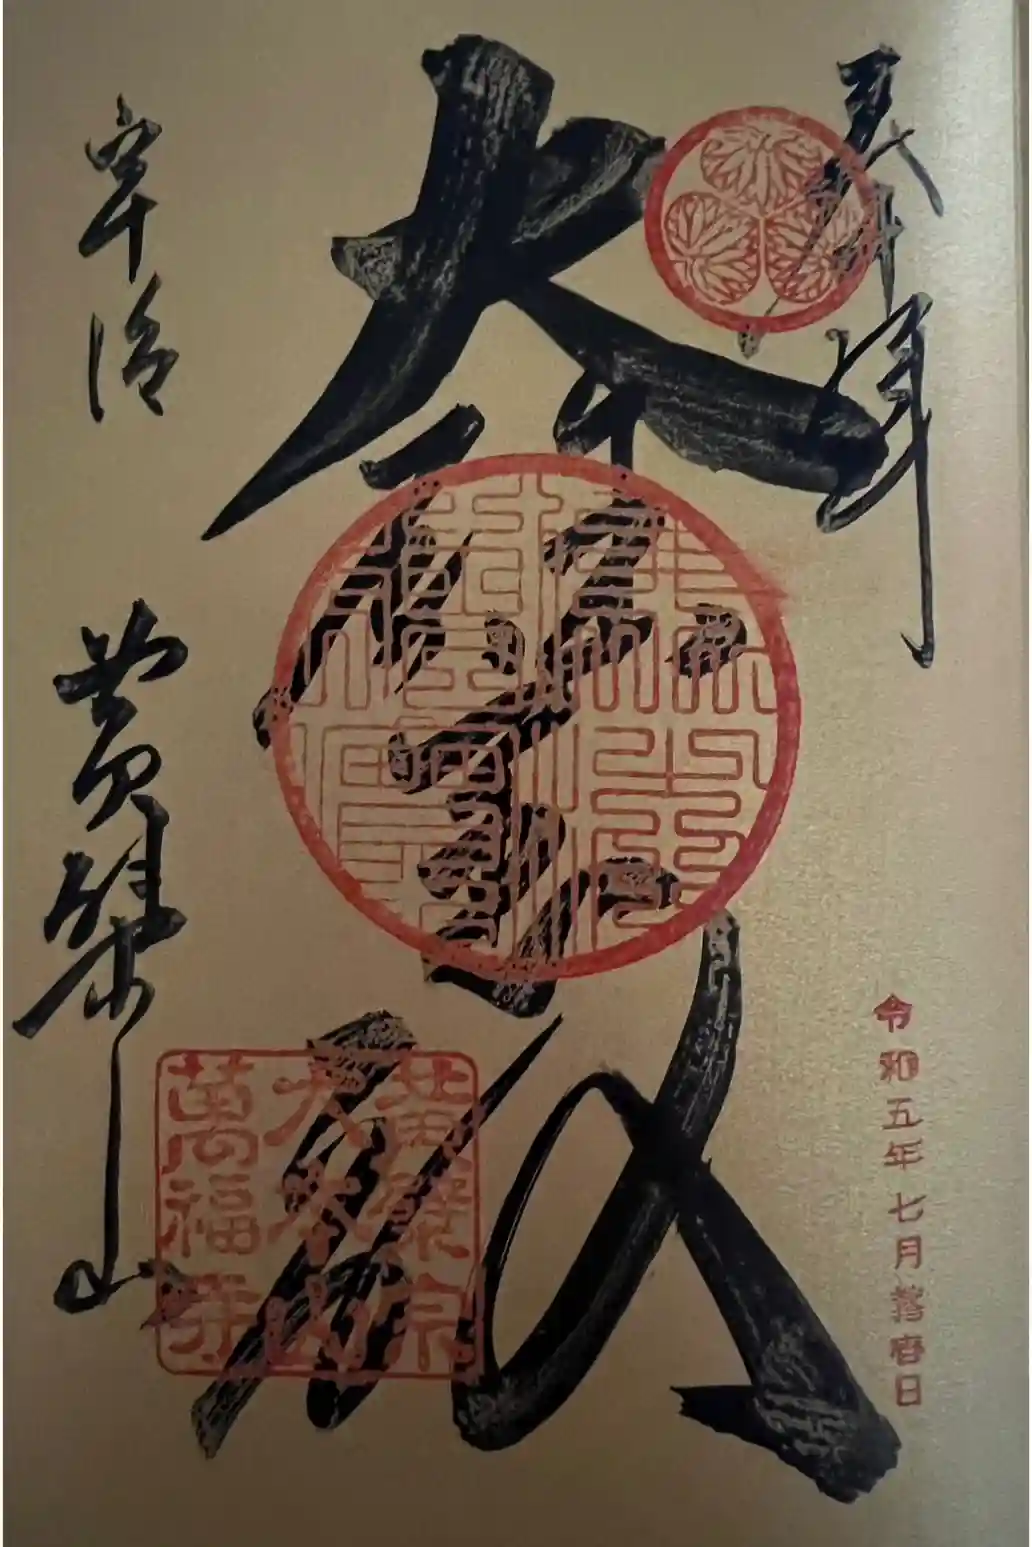 奉拝
令和五年七月
大雄宝殿
黄檗宗
大本山
萬福寺
宇治 黄檗山